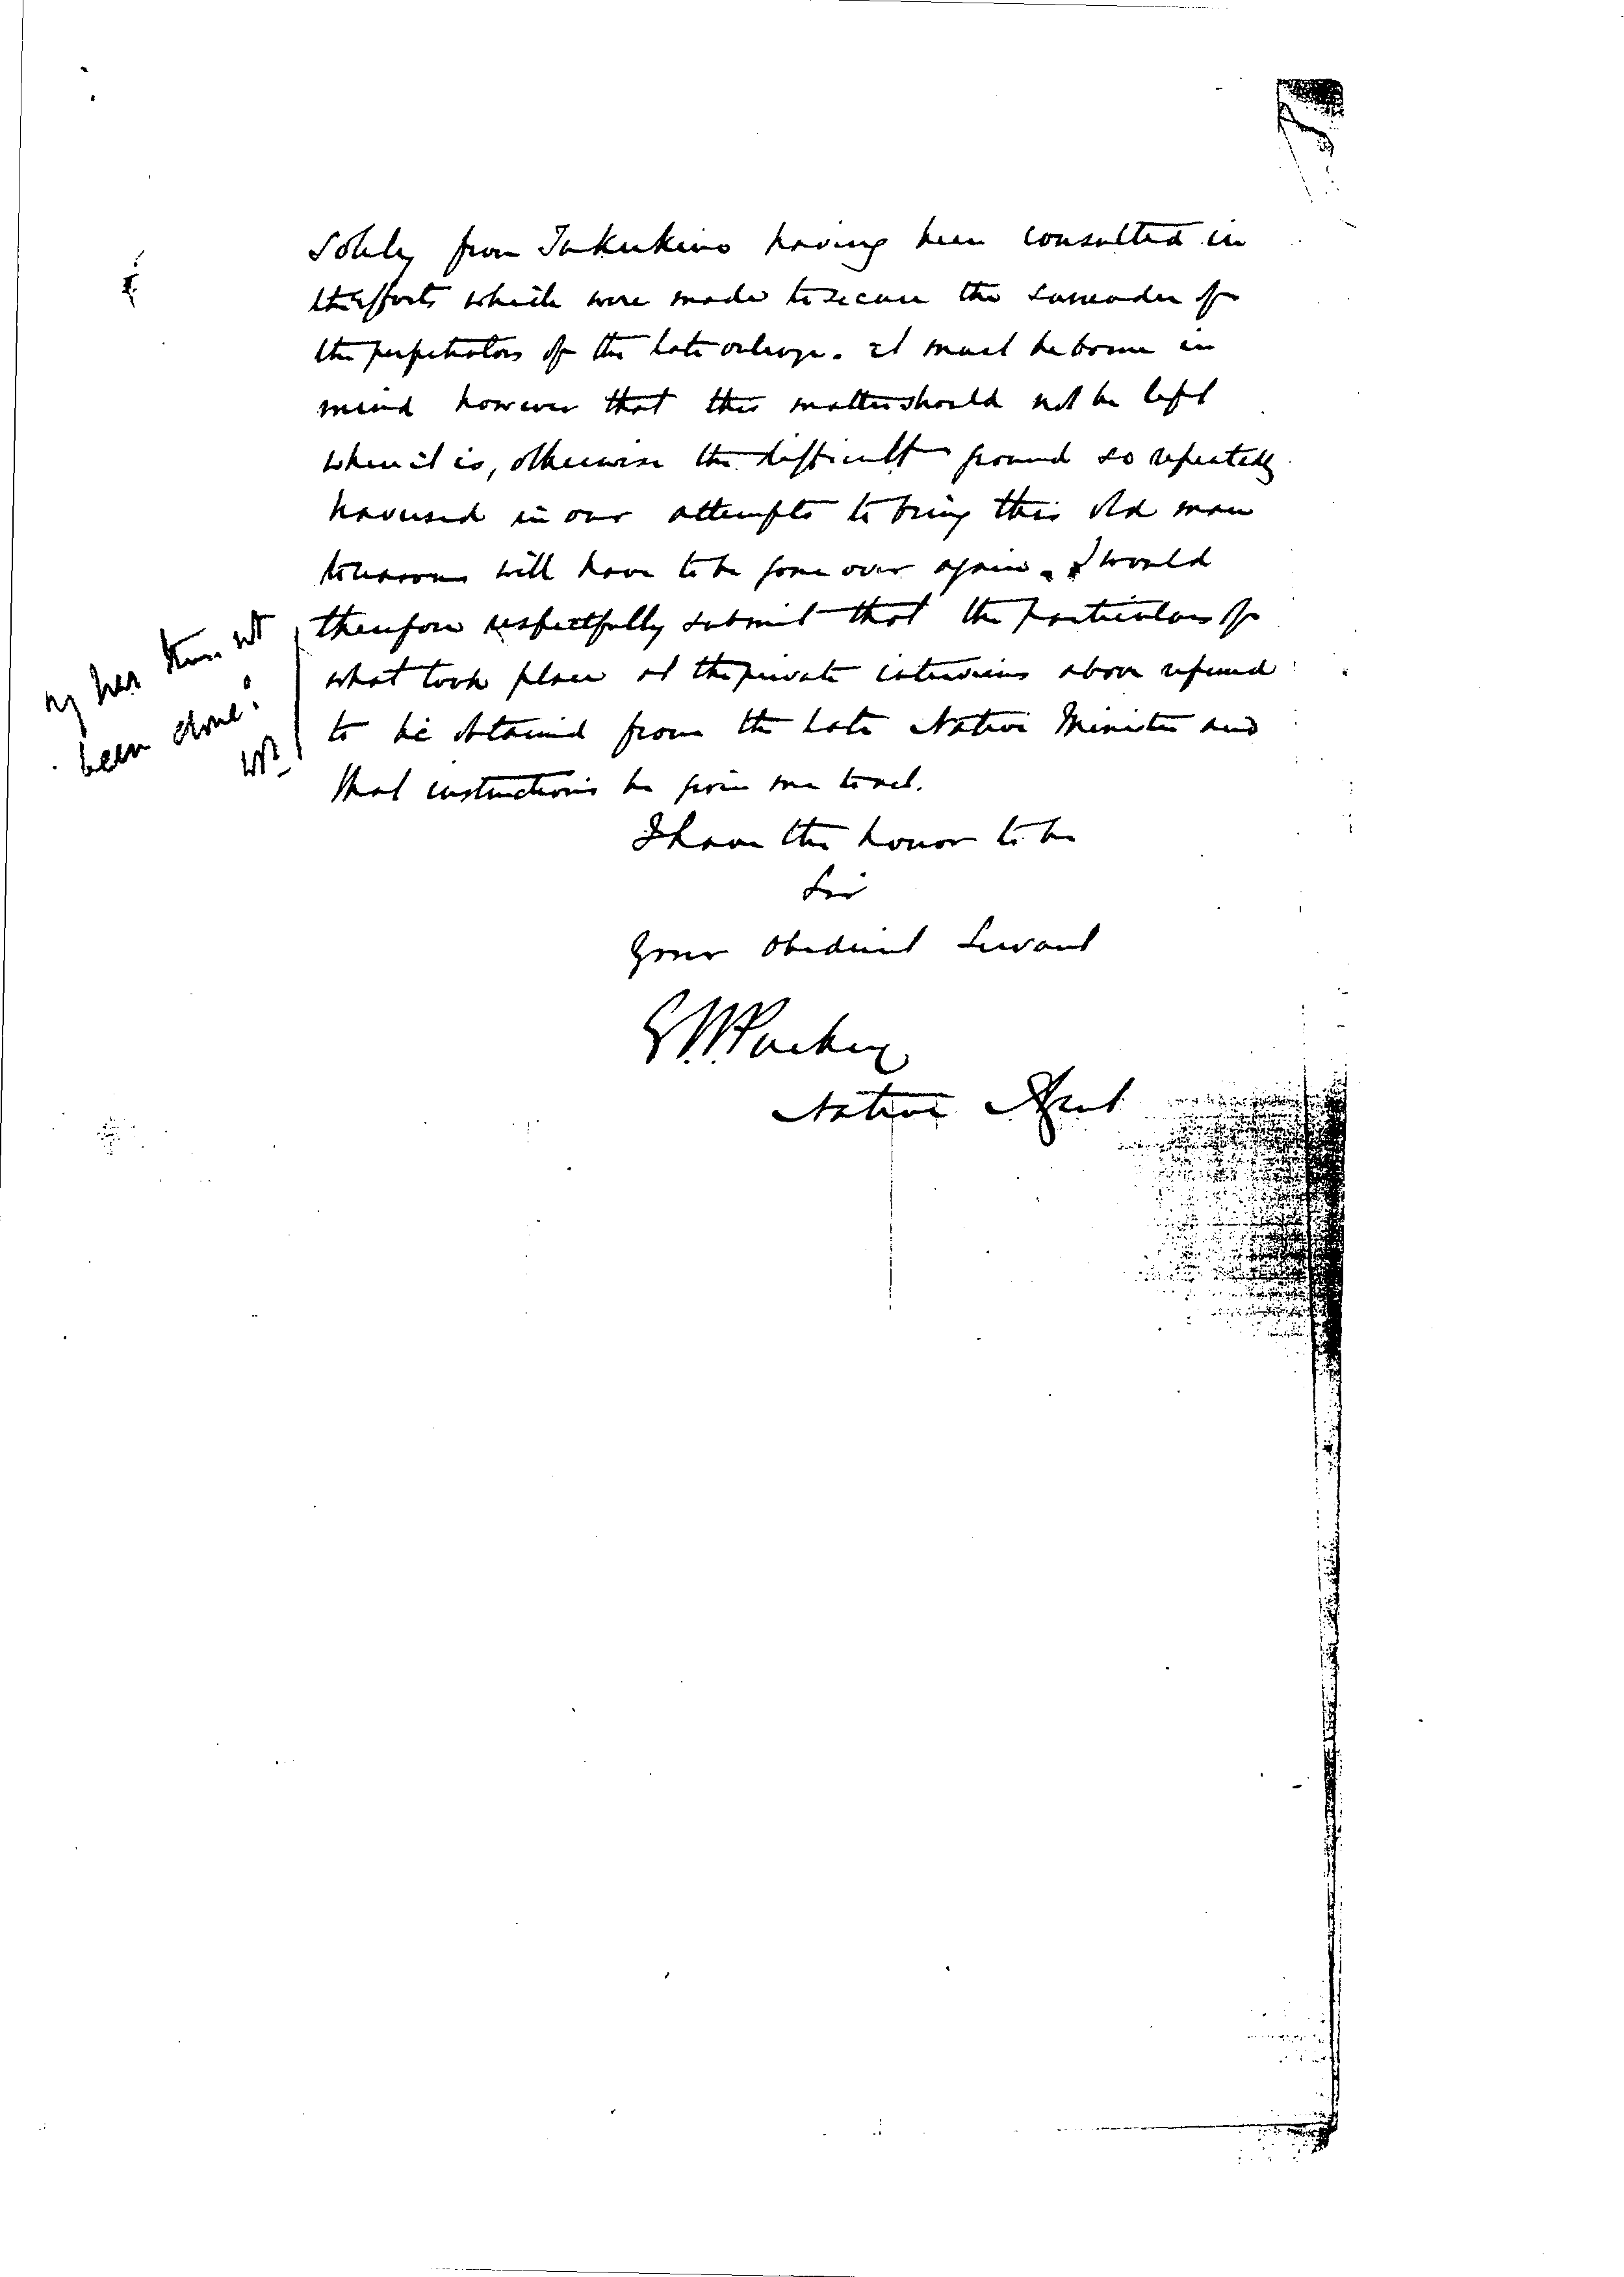 Solely from Takukino having been consulted in
the efforts which were made to secure the surrender of
the perpetrators of the late outrage. It must be borne in
mind however that this matter should not be left
where it is, otherwise the difficult ground so repeatedly
in our attempts to bring this old man
to reason will have to be gone over again. I would
therefore respectfully submit that the particulars of
what took place at the private interviews above referred
to be obtained from the late Native Minister and
that instructions be given me to act.
has this not
been done?
I have the honor to be
Sir
Your Obedient Servant
Native Agent